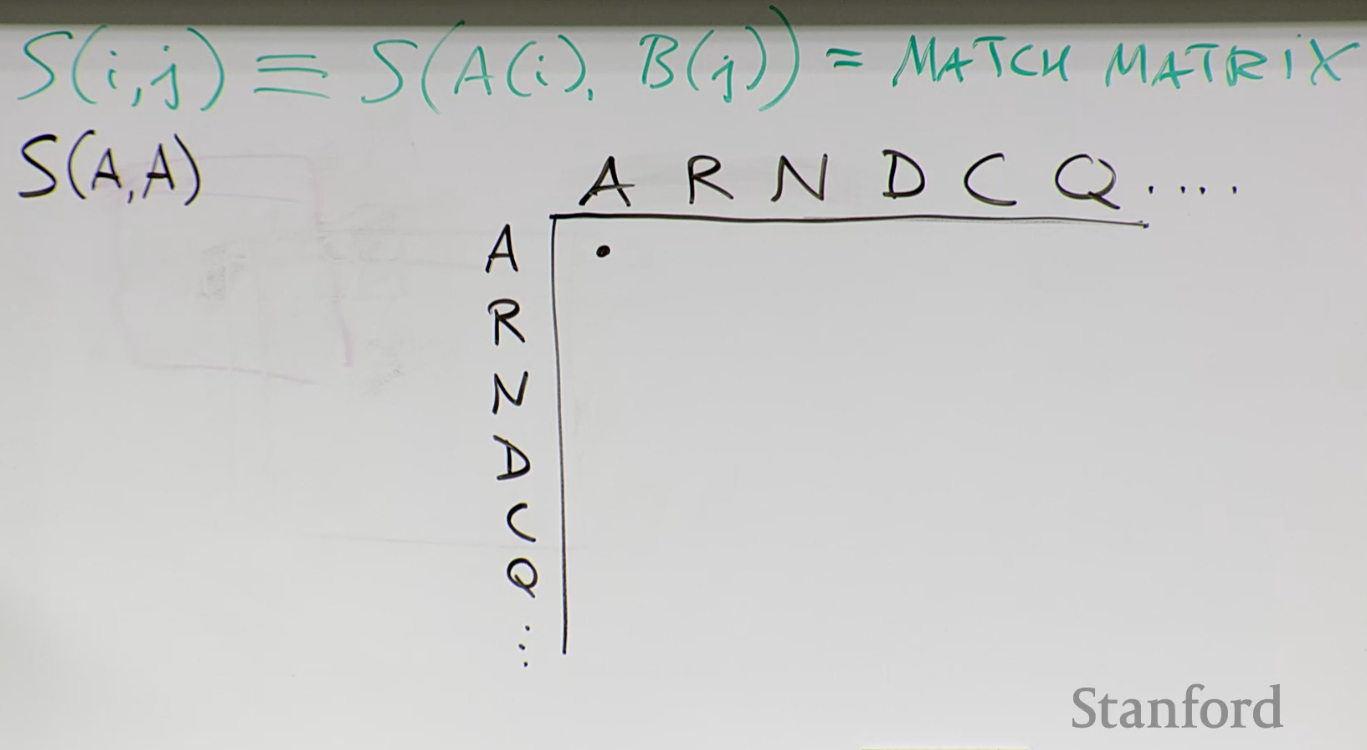 S(i,j) ≡ S(A(i), B(j)) = MATCH MATRIX
S(A,A)
A R N D C Q ....
A •
R
N
D
C
Q
...
Stanford